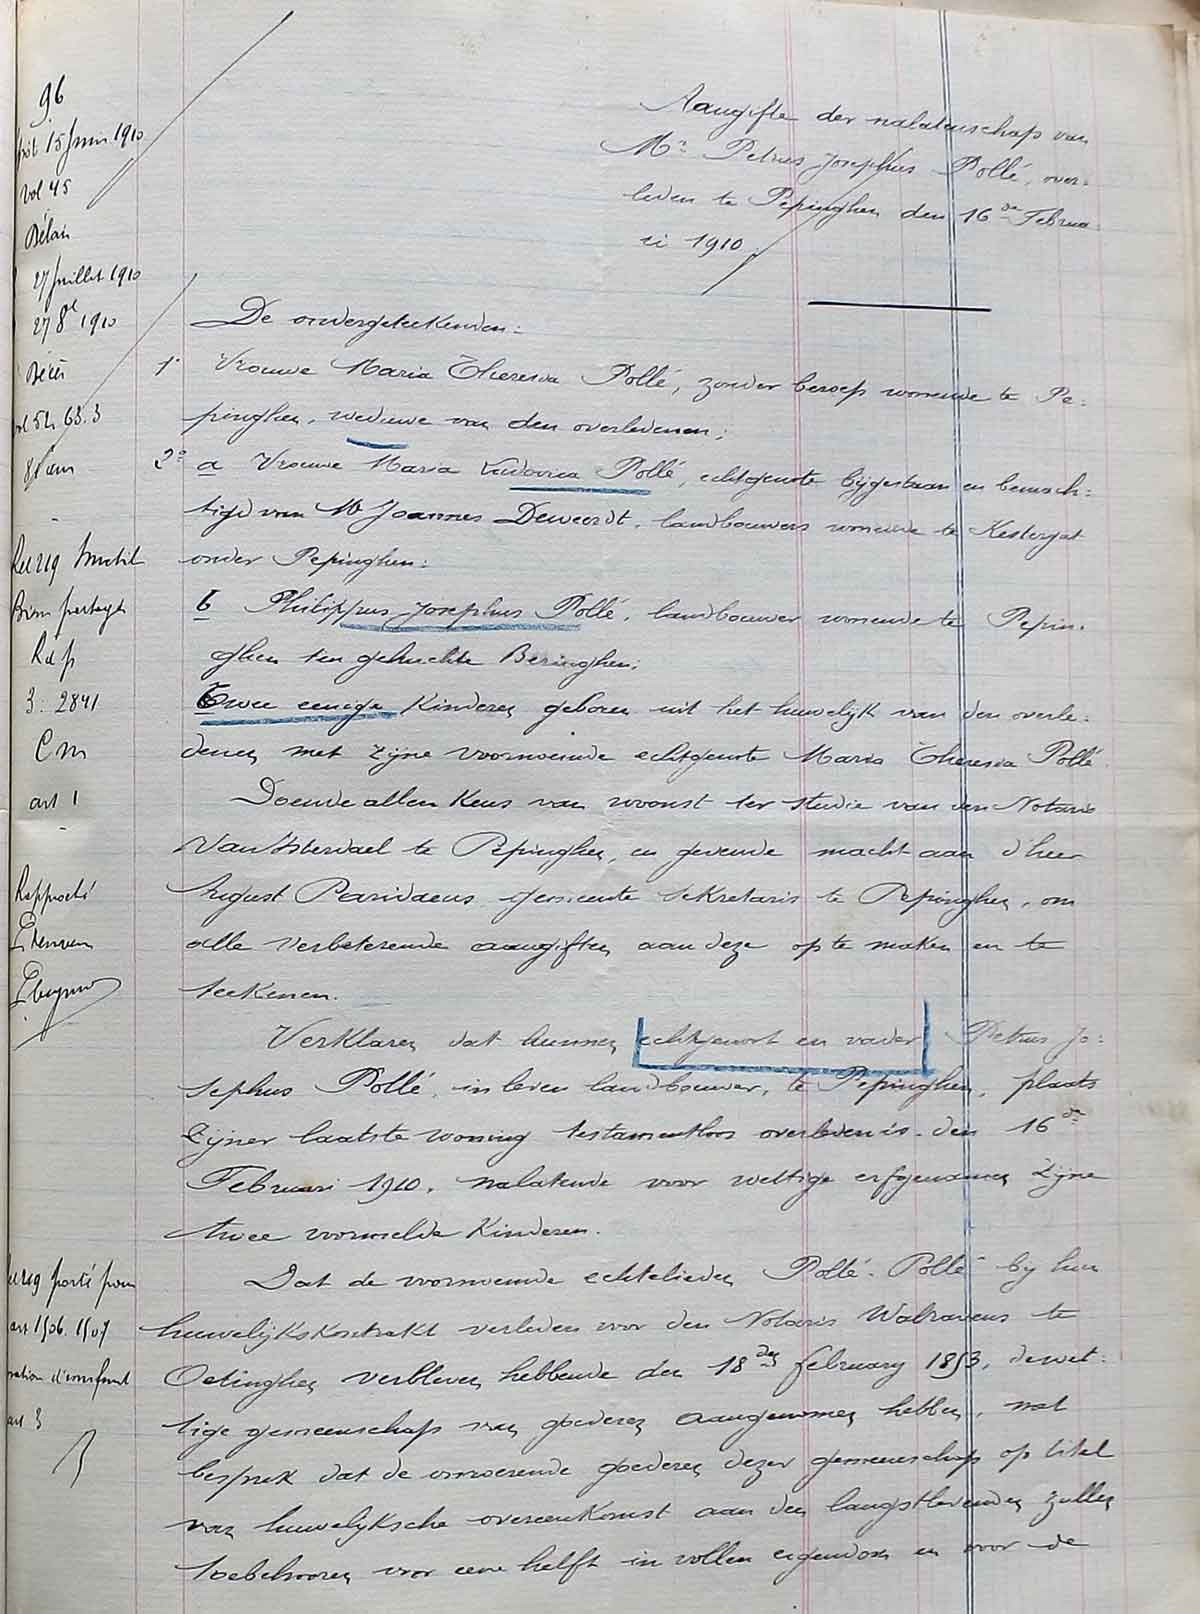 96
15 Juin 1910
vol 45
Délai
27 Juillet 1910
27 8e 1910
Décès
63.3
3: 2841
art 1
art 1506. 1507
art 3
Aangifte der nalatenschap van
Mr Petrus Josephus Pollé, over=
leden te Pepinghen den 16de Februa
ri 1910.
De ondergeteekenden:
1° Vrouwe Maria Theresia Pollé, zonder beroep wonende te Pe=
pinghen, weduwe van den overledenen;
2° a Vrouwe Maria Ludovica Pollé, echtgenote bijgestaan en bemach=
tigd van Mr Joannes Deweerdt, landbouwers wonende te Kestergat
onder Pepinghen:
b Philippus Josephus Pollé, landbouwer wonende te Pepin=
ghen ten gehuchte Beringhen;
Twee eenige Kinderen geboren uit het huwelijk van den overle=
denen met zijne voornoemde echtgenote Maria Theresia Pollé.
Doende allen Keus van woonst ter studie van den Notaris
te Pepinghen, en gevende macht aan d'heer
August Paridaens gemeente sekretaris te Pepinghen, om
alle verbeterende aangiften aan deze op te maken en te
teekenen.
Verklaren dat hunnen echtgenoot en vader Petrus Jo=
sephus Pollé, in leven landbouwer, te Pepinghen, plaats
zijner laatste woning testamentloos overleden is den 16de
Februari 1910, nalatende voor wettige erfgenamen zijne
twee voormelde Kinderen.
Dat de voornoemde echtelieden Pollé-Pollé bij hun
huwelijkskontrakt verleden voor den Notaris Walravens te
Oetinghen verbleven hebbende den 18den february 1853, de wet=
tige gemeenschap van goederen aangenomen hebben, met
besprek dat de onroerende goederen dezer gemeenschap op titel
van huwelijksche overeenkomst aan den langstlevenden zullen
toebehooren voor eene helft in vollen eigendom en voor de